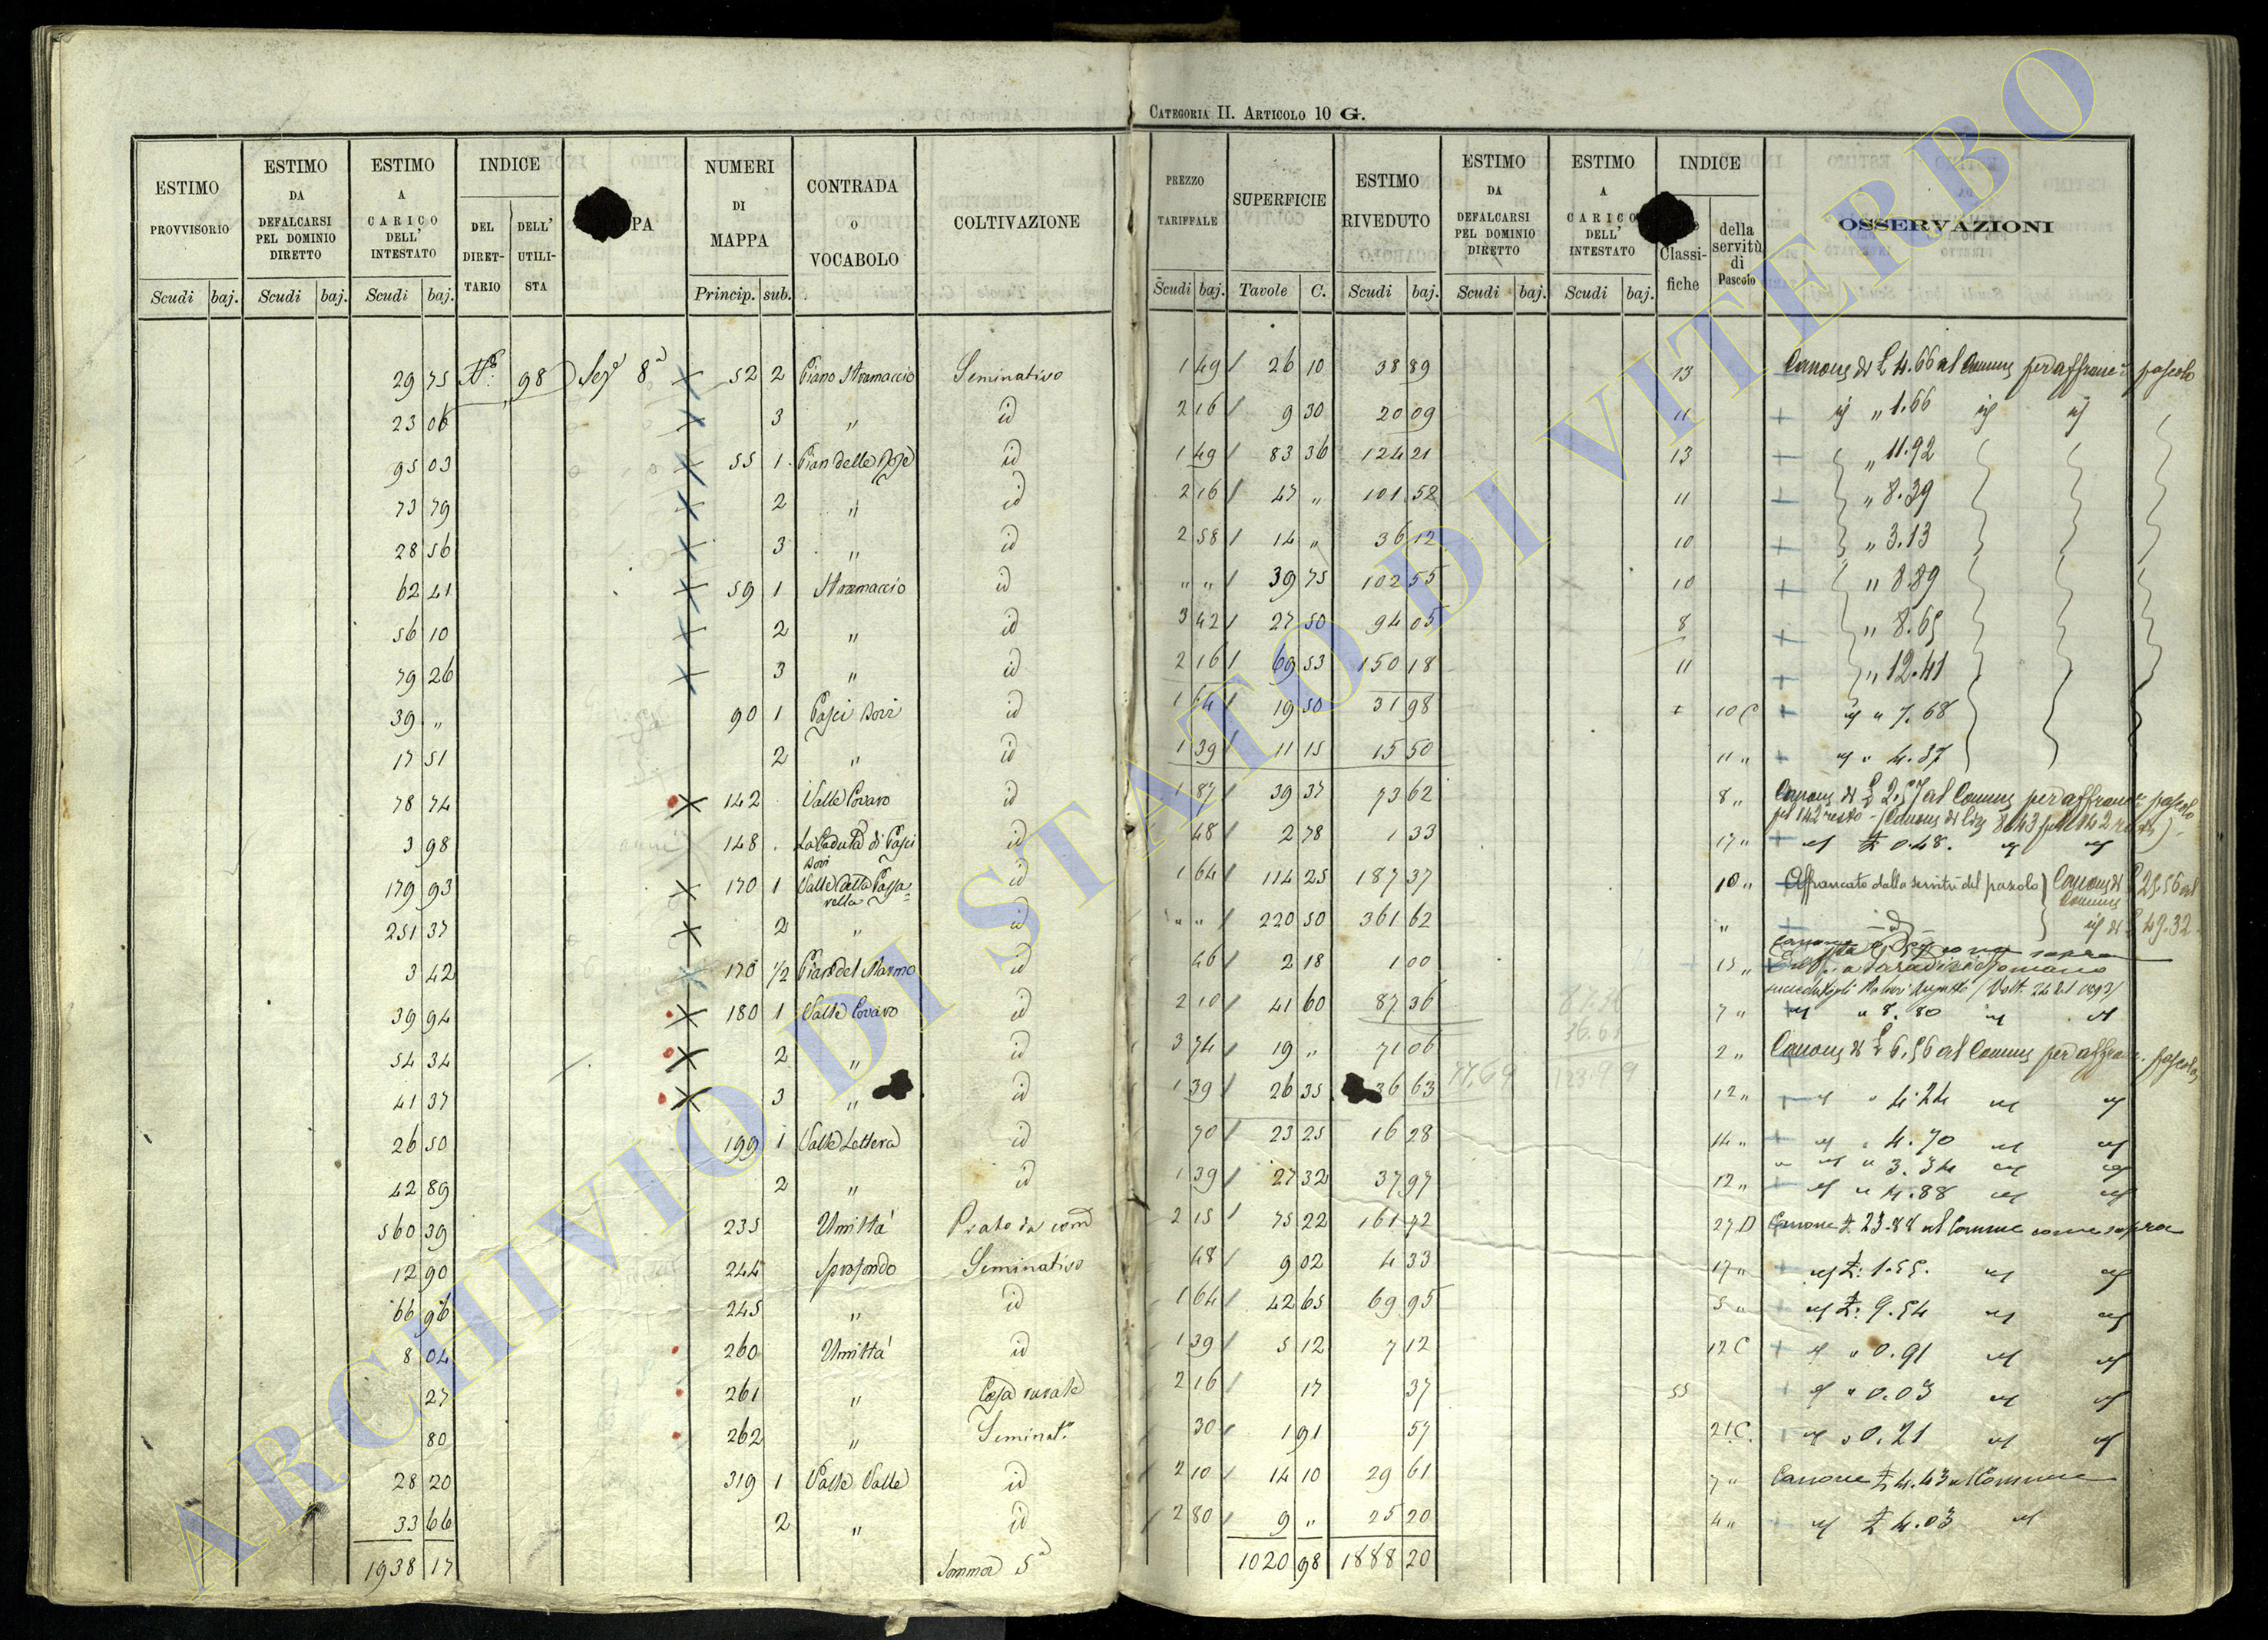 CATEGORIA II. ARTICOLO 10 G.
ESTIMO PROVVISORIO
ESTIMO DA DEFALCARSI PEL DOMINIO DIRETTO
ESTIMO A CARICO DELL' INTESTATO
INDICE
DEL DIRETTARIO
DELL' UTILISTA
PA
NUMERI DI MAPPA
CONTRADA O VOCABOLO
COLTIVAZIONE
PREZZO TARIFFALE
SUPERFICIE
ESTIMO RIVEDUTO
ESTIMO DA DEFALCARSI PEL DOMINIO DIRETTO
ESTIMO A CARICO DELL' INTESTATO
INDICE
Classifiche
della servitù di Pascolo
OSSERVAZIONI
Scudi baj. Scudi baj. Scudi baj. Princip. sub. Scudi baj. Tavole C. Scudi baj. Scudi baj. Scudi baj.
29 75 98 8ª 52 2 Piano Stramaccio Seminativo 1 49 26 10 38 89 13 Canone di £ 4.66 al Comune per affranc pascolo
23 06 3 " id 2 16 9 30 20 09 11 id " 1.66 id id
95 03 55 1 Pian delle id 1 49 83 36 124 21 13 " 11.92
73 79 2 " id 2 16 47 " 101 52 11 " 8.39
28 56 3 " id 2 58 14 " 36 12 10 " 3.13
62 41 59 1 Stramaccio id " " 39 75 102 55 10 " 8.89
56 10 2 " id 3 42 27 50 94 05 8 " 8.65
79 26 3 " id 2 16 69 53 150 18 11 " 12.41
39 " 90 1 id 1 64 19 50 31 98 10 C id " 7.68
17 51 2 " id 1 39 11 15 15 50 11 " id " 4.37
78 74 142 Valle Covaro id 1 87 39 37 73 62 8 " Canone di £ al Comune per affranc pascolo
3 98 148 La Caduta di id 48 2 78 1 33 17 " id £ 0.48. id id
179 93 170 1 Valle della id 1 64 114 25 187 37 10 " Affrancato dalla servitù del pascolo Canone di £ 25.56 al Comune
251 37 2 " id " " 220 50 361 62 " id id di £ 49.32
3 42 170 1/2 Pian del Marmo id 46 2 18 1 00 15 "
39 94 180 1 Valle Covaro id 2 10 41 60 87 36 7 " id " 8.80 id id
54 34 2 " id 3 74 19 " 71 06 2 " Canone di £ 6.56 al Comune per affranc. pascolo
41 37 3 " id 1 39 26 35 36 63 77,69 123.99 12 " id " 4.24 id id
26 50 199 1 Valle Lettera id 70 23 25 16 28 14 " id " 4.70 id id
" id " 3.34 id id
42 89 2 " id 1 39 27 32 37 97 12 " id " 4.88 id id
560 39 235 Umiltà Prato 2 15 75 22 161 72 27 D Canone £ 23.88 al Comune come sopra
12 90 244 Sprofondo Seminativo 48 9 02 4 33 17 " id £: 1.55. id id
66 96 245 " id 1 64 42 65 69 95 5 " id £: 9.54 id id
8 04 260 Umiltà id 1 39 5 12 7 12 12 C id " 0.91 id id
27 261 " Casa rurale 2 16 17 37 55 id " 0.03 id id
80 262 " Seminat.º 30 1 91 57 21 C. id " 0.21 id id
28 20 319 1 Valle Valle id 2 10 14 10 29 61 7 " Canone £ 4.43 al Comune
33 66 2 " id 2 80 9 " 25 20 4 " id £ 4.03 id
1938 17 Somma 5ª 1020 98 1888 20
ARCHIVIO DI STATO DI VITERBO